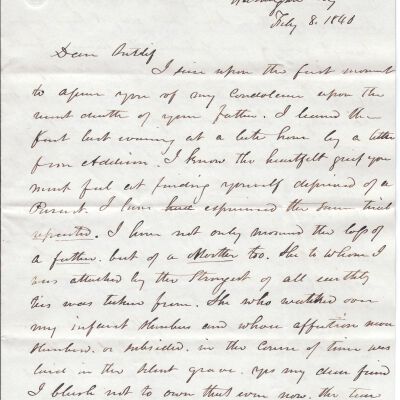 Washington City
Feby 8. 1840
Dear
I seize upon the first moment
to assure you of my Condolence upon the
recent death of your father. I learned the
fact last evening at a late hour by a letter
from Addison. I know the heartfelt grief you
must feel at finding yourself deprived of a
Parent. I have had experienced the same trial
repeated. I have not only mourned the loss of
a father. but of a Mother too. She to whom I
was attached by the Strongest of all earthly
ties was taken from. She who watched over
my infant Slumbers and whose affection never
Slumbered. or subsided. in the Course of time was
laid in the silent grave. yes my dear friend
I blush not to own that even now. the tear